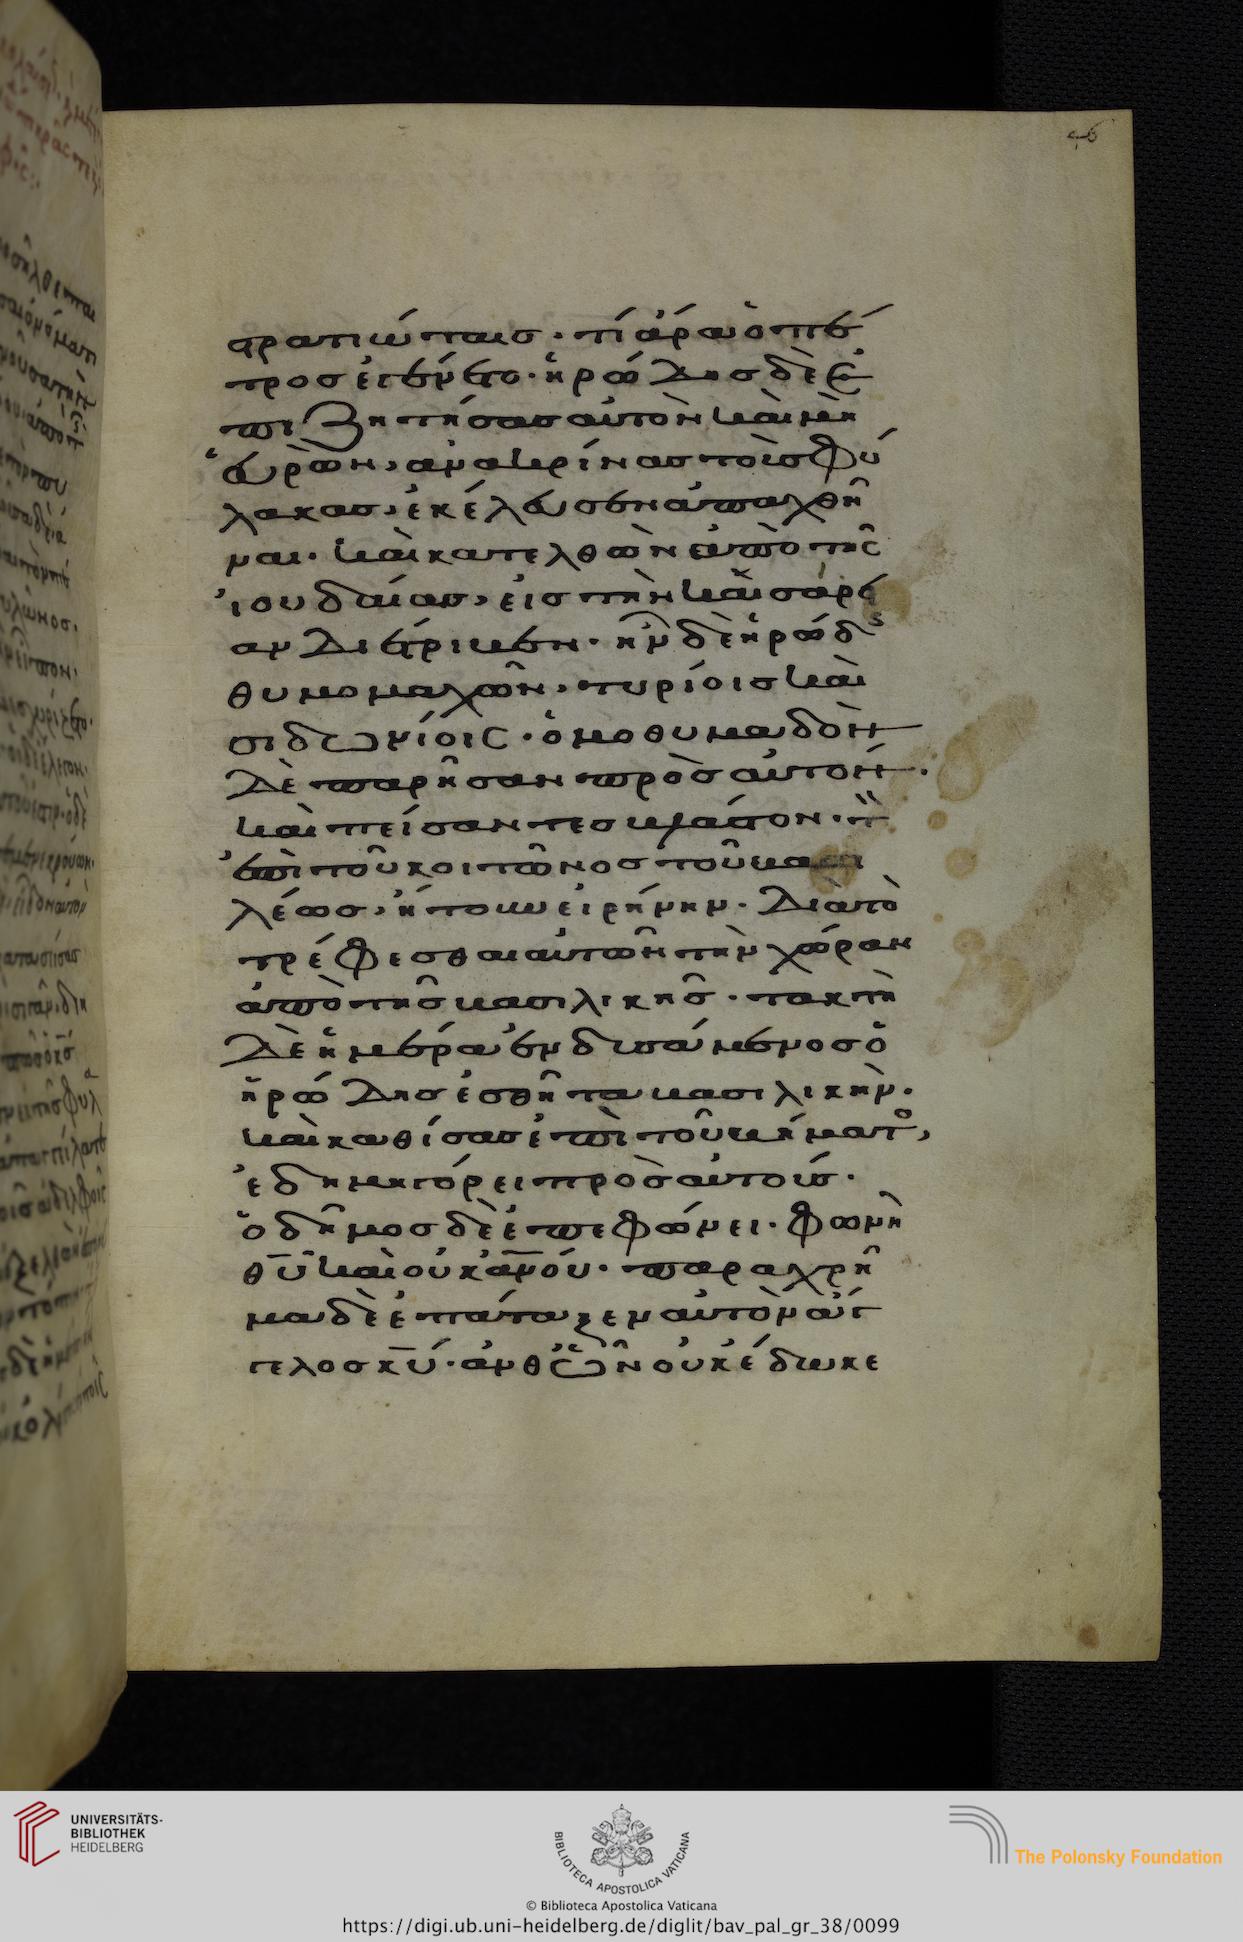 46
στρατιώταις · τί ἄρα ὁ πέ
τρος ἐγένετο · ἡρώδης δὲ ἐ
πιζητήσας αὐτὸν καὶ μὴ
εὑρὼν, ἀνακρίνας τοὺς φύ
λακας, ἐκέλευσεν ἀπαχθῆ
ναι · καὶ κατελθὼν ἀπὸ τῆς
ἰουδαίας, εἰς τὴν καισάρει
αν διέτριβεν · ἦν δὲ ἡρώδς
θυμομαχῶν, τυρίοις καὶ
σιδωνίοις · ὁμοθυμαδὸν
δὲ παρῆσαν πρὸς αὐτόν ·
καὶ πείσαντες βλάστον · τὸν
ἐπὶ τοῦ κοιτῶνος τοῦ βασι
λέως, ἠτοῦν εἰρήνην · διὰ τὸ
τρέφεσθαι αὐτῶν τὴν χώραν
ἀπὸ τῆς βασιλικῆς · τακτῇ
δὲ ἡμέρα ἐνδυσάμενος ὁ
ἡρώδης ἐσθῆτα βασιλικὴν ·
καὶ καθίσας ἐπὶ τοῦ βήματο,
ἐδημηγόρει πρὸς αὐτούς ·
ὁ δῆμος δὲ ἐπεφώνει · φωνὴ
θυ καὶ οὐκ ανου · παραχρῆ
μα δὲ ἐπάταξεν αὐτὸν ἄγ
γελος κυ · ἀνθ ὧν οὐκ ἔδωκε
UNIVERSITÄTS-
BIBLIOTHEK
HEIDELBERG
BIBLIOTECA APOSTOLICA VATICANA
The Polonsky Foundation
© Biblioteca Apostolica Vaticana
https://digi.ub.uni-heidelberg.de/diglit/bav_pal_gr_38/0099